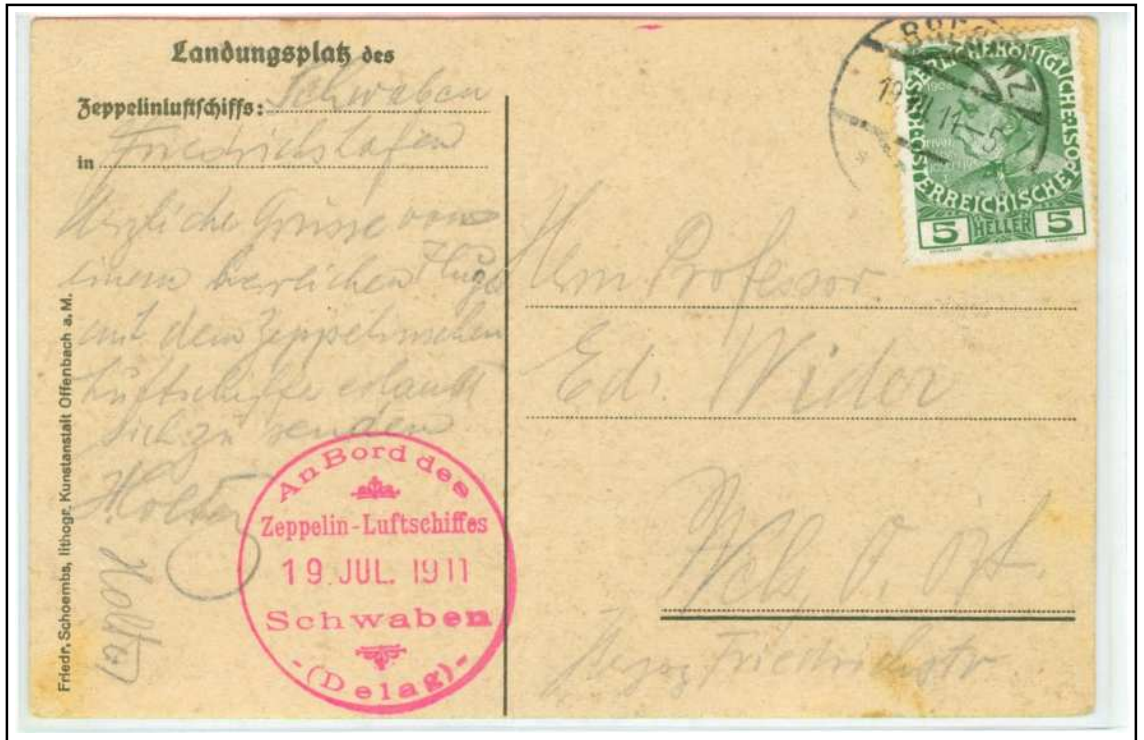 Landungsplatz des
Zeppelinluftschiffs: Schwaben
in Friedrichshafen
Herzliche Grüsse von
einem herrlichen Fluge
mit dem Zeppelinschen
Luftschiffe erlaubt
sich zu senden
Holter
Holter
Friedr. Schoembs, lithogr. Kunstanstalt Offenbach a. M.
An Bord des
Zeppelin-Luftschiffes
19. JUL. 1911
Schwaben
-(Delag)-
19.VII.11
KAISERLICHE KÖNIGLICHE
ÖSTERREICHISCHE POST
5 HELLER 5
Herrn Professor
Ed. Wider
Wels, O. Öst.
Friedrichstr.